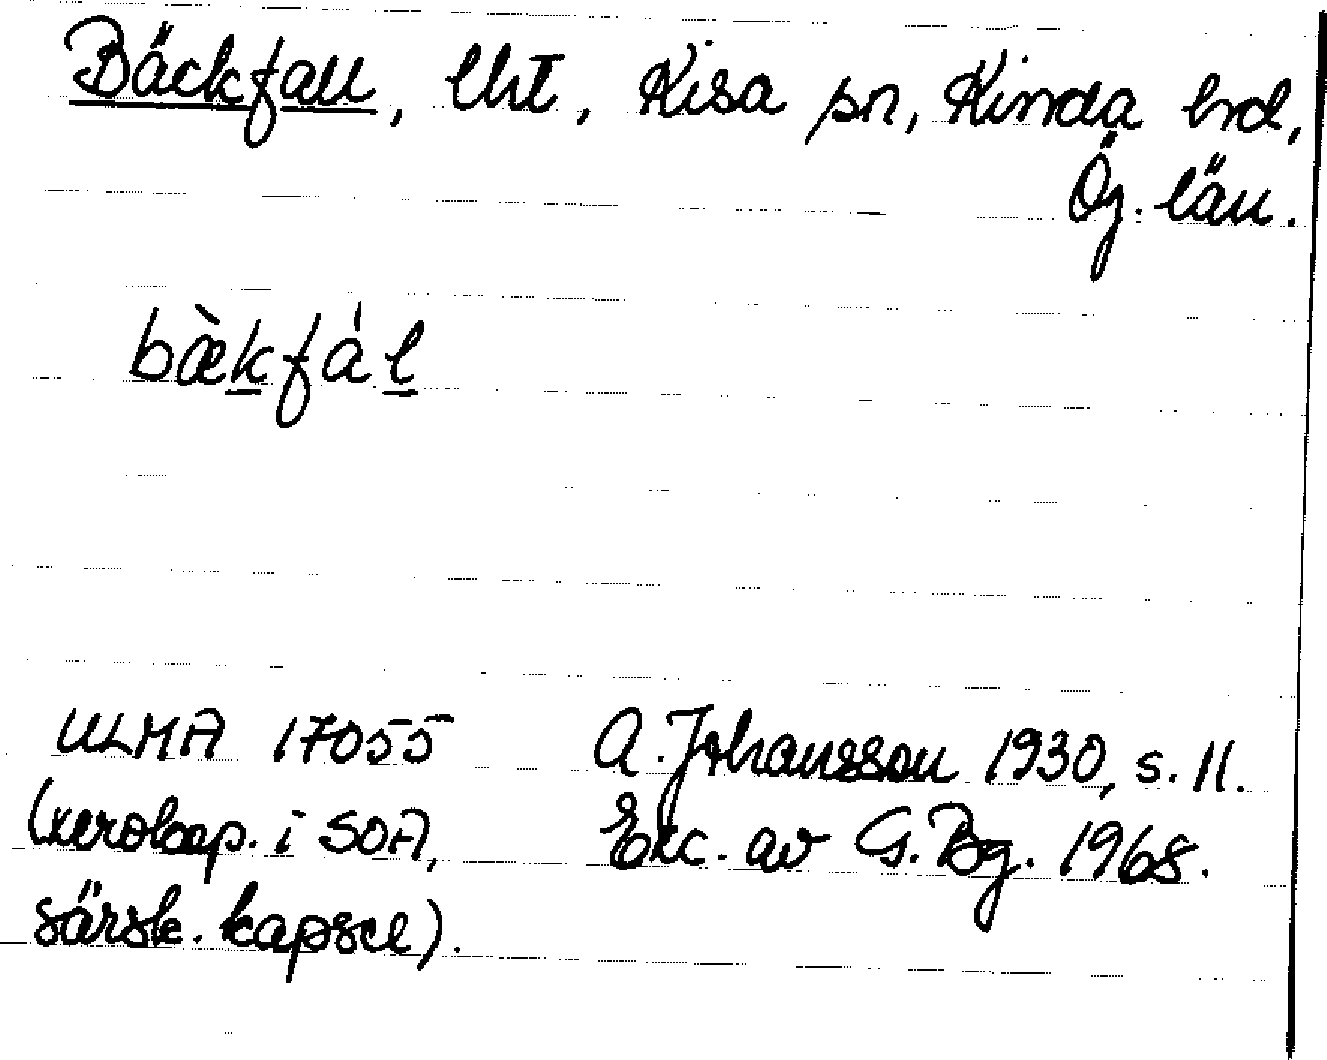 Bäckfall, lht, Kisa sn, Kinda hd,
Ög. län.
bæ̀kfál
ULMA 17055 A. Johansson 1930, s. 11.
(xerokop. i SOA, Exc. av G. Bg. 1968.
särsk. kapsel).